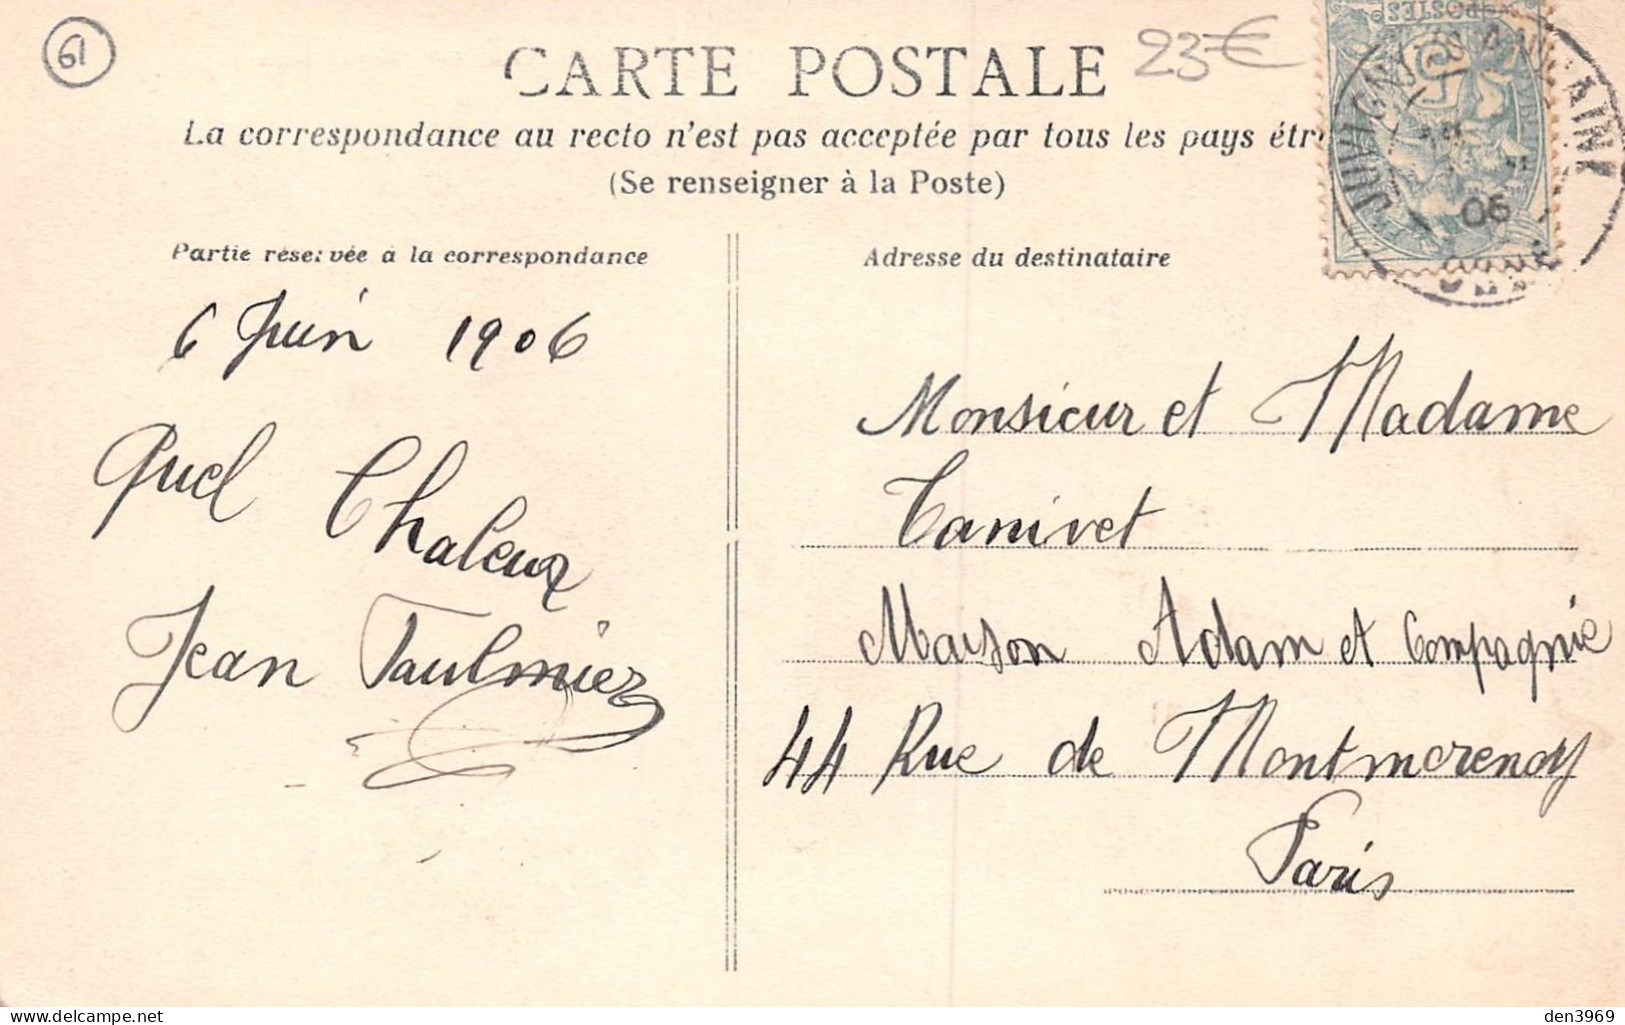 61
CARTE POSTALE
23€
La correspondance au recto n'est pas acceptée par tous les pays étr
(Se renseigner à la Poste)
POSTES
06
Partie réservée à la correspondance
Adresse du destinataire
6 Juin 1906
Quel Chaleur
Jean Taulmier
Monsieur et Madame
Canivet
Maison Adam et Compagnie
44 Rue de Montmorency
Paris
delcampe.net
den3969